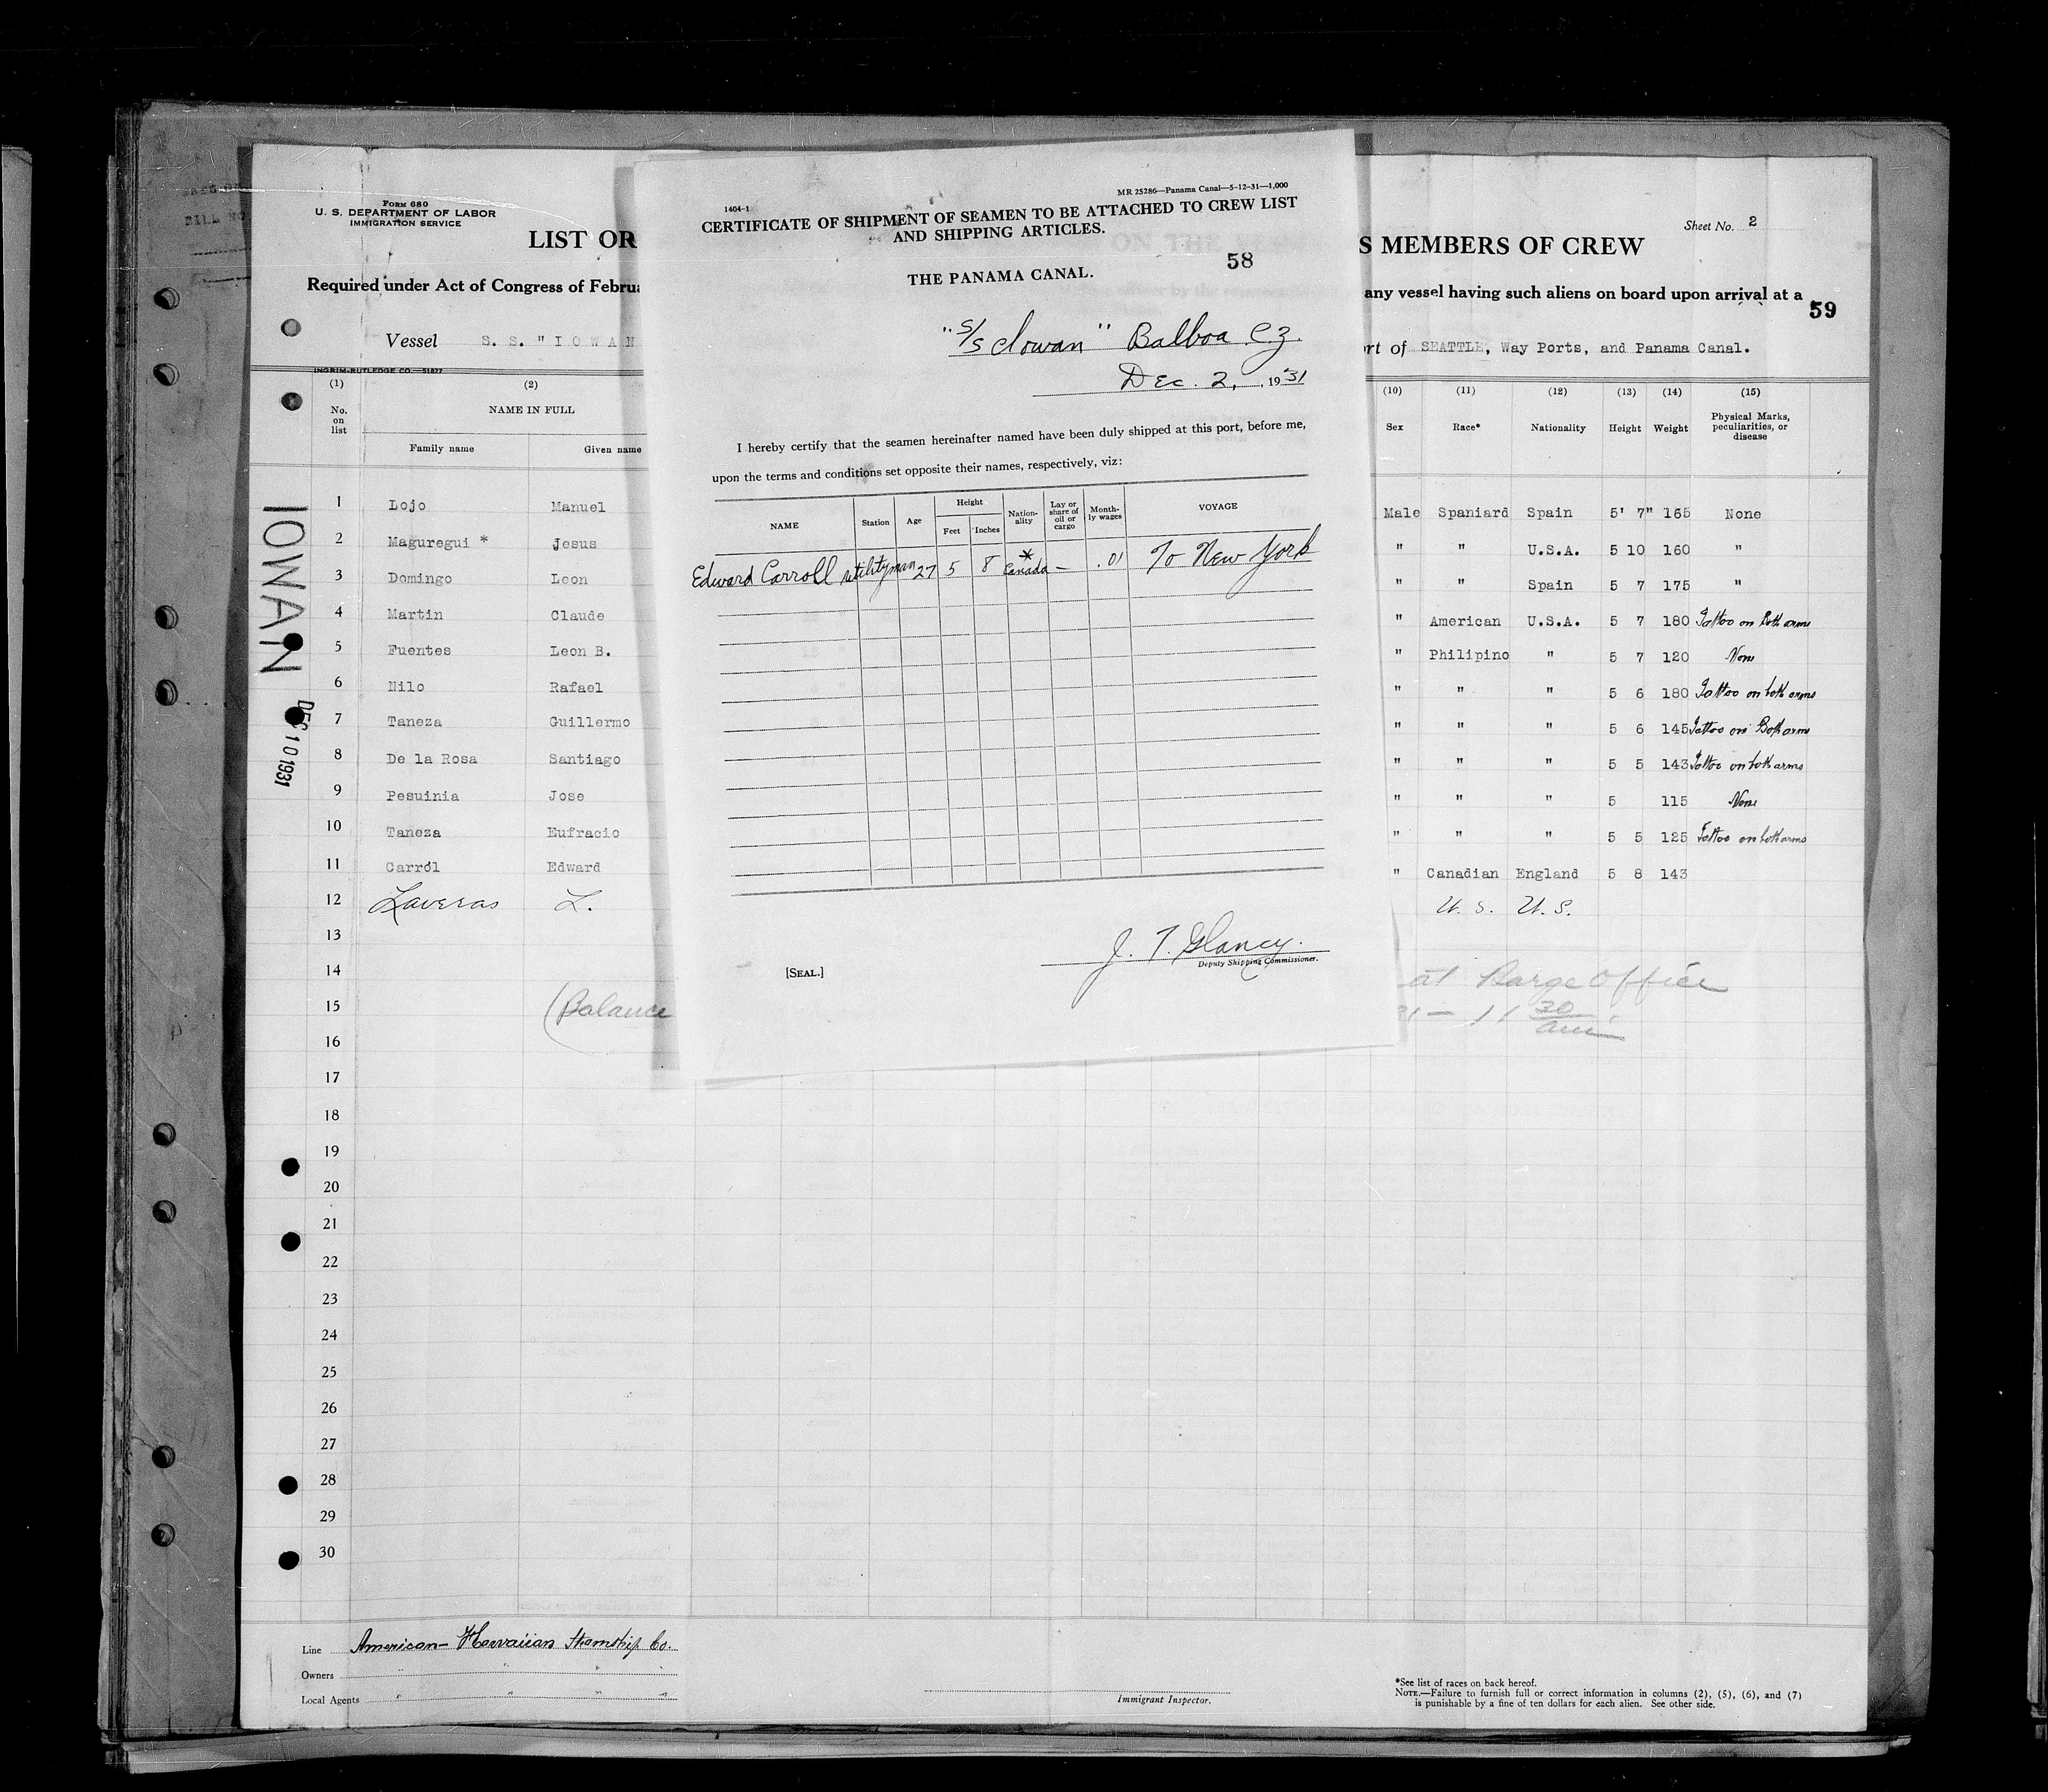 Form 680
U. S. DEPARTMENT OF LABOR
IMMIGRATION SERVICE
LIST OR
S MEMBERS OF CREW
Sheet No. 2
Required under Act of Congress of Februa
any vessel having such aliens on board upon arrival at a
59
Vessel S. S. "IOWAN
rt of SEATTLE, Way Ports, and Panama Canal.
INGRIM-RUTLEDGE CO.—51877
(1) (2) (10) (11) (12) (13) (14) (15)
No. on list
NAME IN FULL
Family name Given name
Sex Race* Nationality Height Weight Physical Marks, peculiarities, or disease
1 Lojo Manuel Male Spaniard Spain 5' 7" 165 None
2 Maguregui * Jesus " " U.S.A. 5 10 160 "
3 Domingo Leon " " Spain 5 7 175 "
4 Martin Claude " American U.S.A. 5 7 180 Tattoo on both arms
5 Fuentes Leon B. " Philipino " 5 7 120 None
6 Nilo Rafael " " " 5 6 180 Tattoo on both arms
7 Taneza Guillermo " " " 5 6 145 Tattoo on Both arms
8 De la Rosa Santiago " " " 5 5 143 Tattoo on both arms
9 Pesuinia Jose " " " 5 115 None
10 Taneza Eufracio " " " 5 5 125 Tattoo on both arms
11 Carrol Edward " Canadian England 5 8 143
12 Laveras L. U. S. U. S.
13
14 at Barge Office
15 (Balance 31 — 11 30 am
16
17
18
19
20
21
22
23
24
25
26
27
28
29
30
IOWAN
DEC 10 1931
Line American-Hawaiian Steamship Co.
Owners " " "
Local Agents " " "
Immigrant Inspector.
*See list of races on back hereof.
NOTE.—Failure to furnish full or correct information in columns (2), (5), (6), and (7)
is punishable by a fine of ten dollars for each alien. See other side.
MR 25286—Panama Canal—5-12-31—1,000
1404-1
CERTIFICATE OF SHIPMENT OF SEAMEN TO BE ATTACHED TO CREW LIST
AND SHIPPING ARTICLES.
THE PANAMA CANAL.
58
"S/S Iowan" Balboa C.Z.
Dec. 2, 1931
I hereby certify that the seamen hereinafter named have been duly shipped at this port, before me,
upon the terms and conditions set opposite their names, respectively, viz:
NAME Station Age Height Feet Inches Nation-ality Lay or share of oil or cargo Month-ly wages VOYAGE
Edward Carroll utilityman 27 5 8 * Canada — .01 To New York
J. T. Glancy.
[SEAL.]
Deputy Shipping Commissioner.